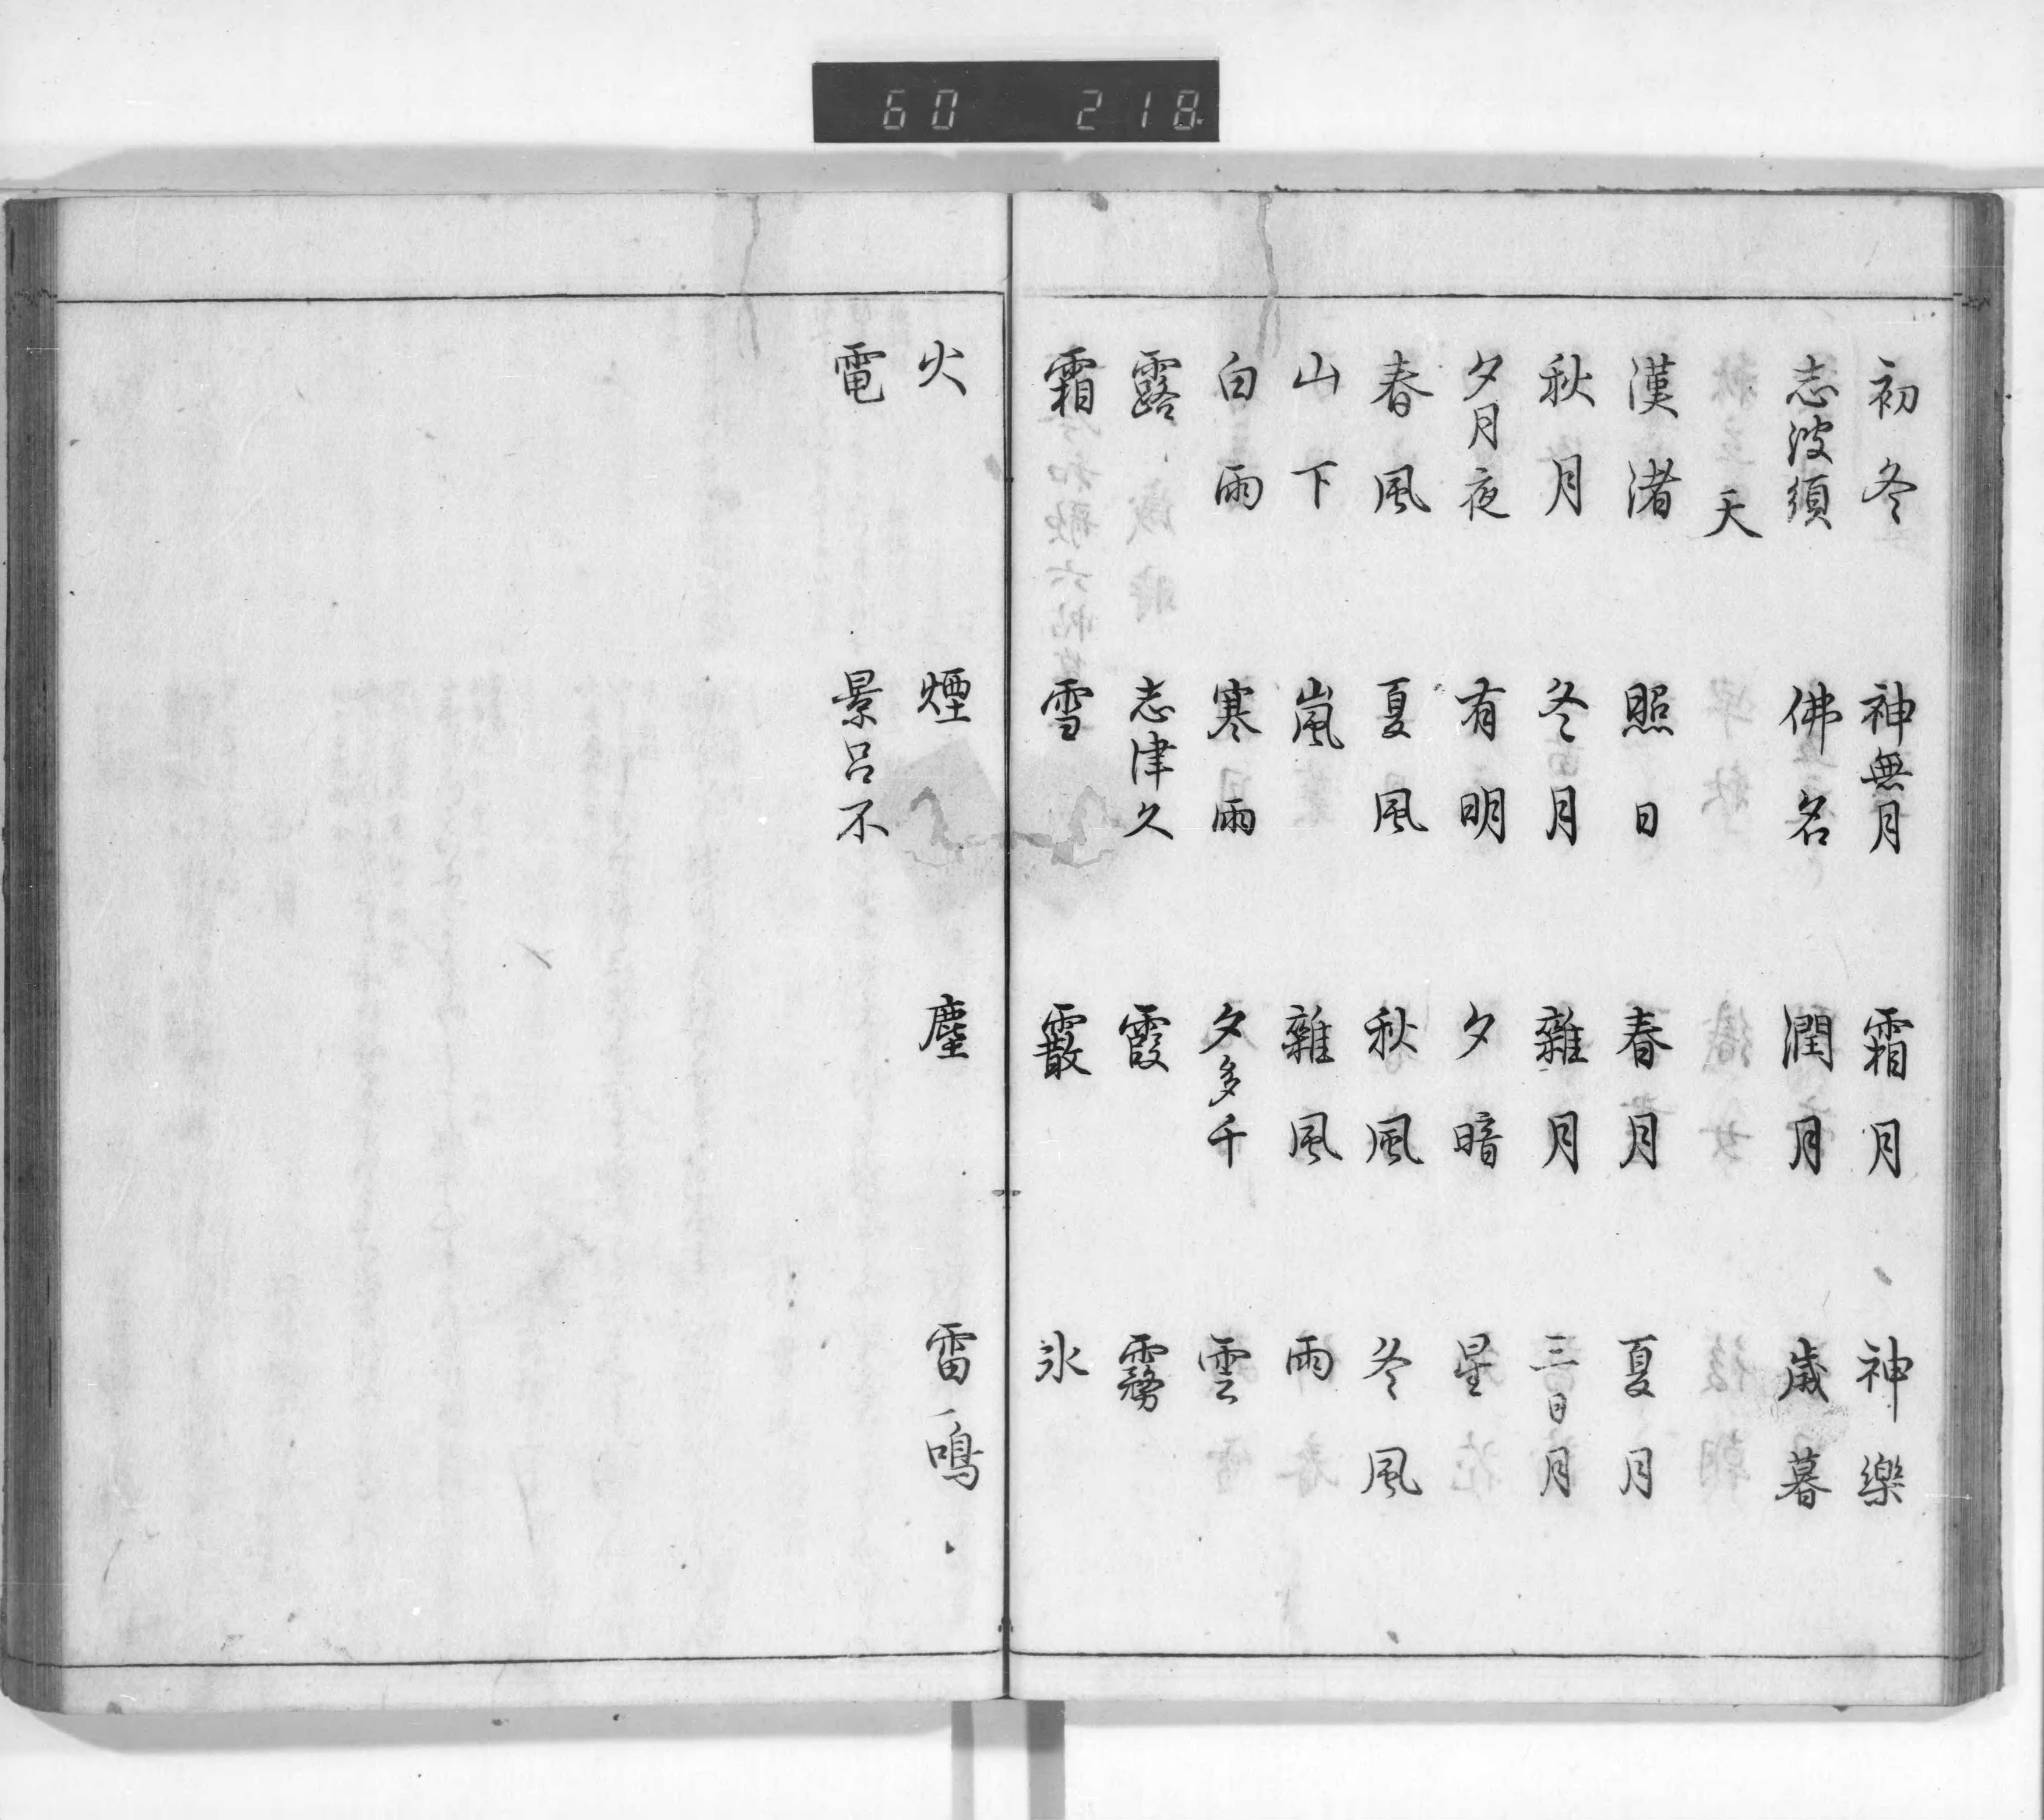 60 218
初冬 神無月 霜月 神樂
志波須 佛名 潤月 歳暮
天
漢渚 照日 春月 夏月
秋月 冬月 雜月 三日月
夕月夜 有明 夕暗 星
春風 夏風 秋風 冬風
山下 嵐 雜風 雨
白雨 寒雨 夕多千 雲
露 志津久 霞 霧
霜 雪 霰 氷
火 煙 塵 雷鳴
電 景呂不